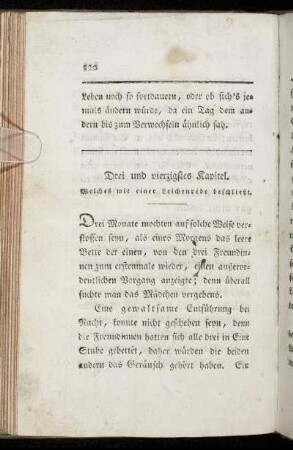 220
Leben noch so fortdauern, oder ob sich's je-
mals ändern würde, da ein Tag dem an-
dern bis zum Verwechseln ähnlich sah.
Drei und vierzigstes Kapitel.
Welches mit einer Leichenrede beschließt.
Drei Monate mochten auf solche Weise ver-
flossen seyn, als eines Morgens das leere
Bette der einen, von den drei Freundin-
nen zum erstenmale wieder, einen ausseror-
dentlichen Vorgang anzeigte; denn überall
suchte man das Mädchen vergebens.
Eine gewaltsame Entführung bei
Nacht, konnte nicht geschehen seyn, denn
die Freundinnen hatten sich alle drei in Eine
Stube gebettet, daher würden die beiden
andern das Geräusch gehört haben. Ein